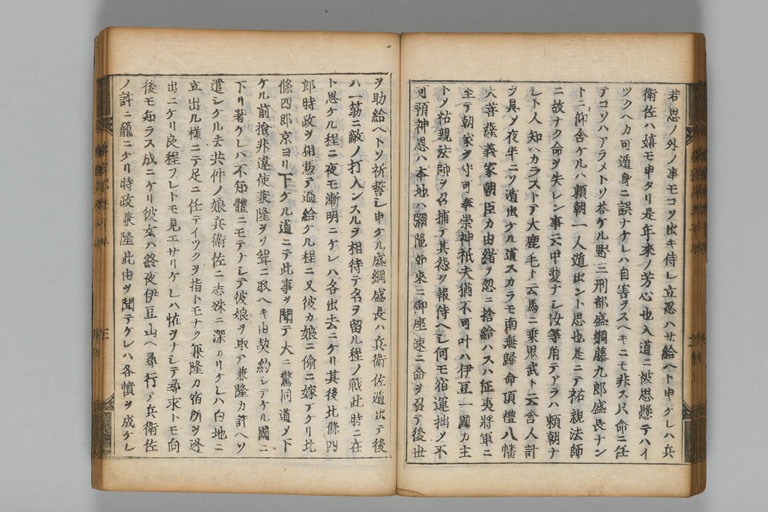 若思ノ外ノ事モコソ出キ侍レ立忍ハセ給ヘト申ケレハ兵
衛佐ハ嬉モ申タリ是年来ノ芳心也入道ニ被思懸テハイ
ツクヘカ可遁身ニ誤ナケレハ自害ヲスヘキニモ非ス只命ニ任
テコソハアラメトソ答ケル野三刑部盛綱藤九郎盛長ナン
トニ仰含ケルハ頼朝一人遁出ント思也是ニテ祐親法師
ニ故ナク命ヲ失レン事云甲斐ナシ汝等角テアラハ頼朝ナ
シト人知ヘカラストテ大鹿毛ト云馬ニ乗鬼武ト云舎人計
ヲ具メ夜半ニソ遁出ケル道スカラモ南無歸命頂禮八幡
大菩薩義家朝臣カ由緒ヲ忽ニ捨給ハスハ征夷将軍ニ
至テ朝家ヲ守可奉崇神祇夫猶不可叶ハ伊豆一國カ主
トメ祐親法師ヲ召捕テ其怨ヲ報侍ヘシ何モ宿運拙メ不
可預神恩ハ本地ハ彌陀如来ニ御座速ニ命ヲ召テ後世
ヲ助給ヘトソ祈誓シ申ケル盛綱盛長ハ兵衛佐遁出テ後
ハ一筋ニ敵ノ打入ンスルヲ相待テ名ヲ留ル程ノ戦此時ニ在
ト思ケル程ニ夜モ漸明ニケレハ各出去ニケリ其後北條四
郎時政ヲ相憑テ過給ケル程ニ又彼カ娘ニ偷ニ嫁テケリ北
條四郎京ヨリ下ケル道ニテ此事ヲ聞テ大ニ驚同道メ下
ケル前検非違使兼隆ヲソ聟ニ取ヘキ由契約シテケル國ニ
下リ著ケレハ不知體ニモテナシテ彼娘ヲ取テ兼隆カ許ヘソ
遣シケル去共件ノ娘兵衛佐ニ志殊ニ深カリケレハ白地ニ
立出ル様ニテ足ニ任テイツクヲ指トモナク兼隆カ宿所ヲ逃
出ニケリ良程フレトモ見エサリケレハ怪ヲナシテ尋求トモ向
後モ知ラス成ニケリ彼女ハ終夜伊豆山ヘ尋行テ兵衛佐
ノ許ニ籠ニケリ時政兼隆此由ヲ聞テケレハ各憤ヲ成ケレ